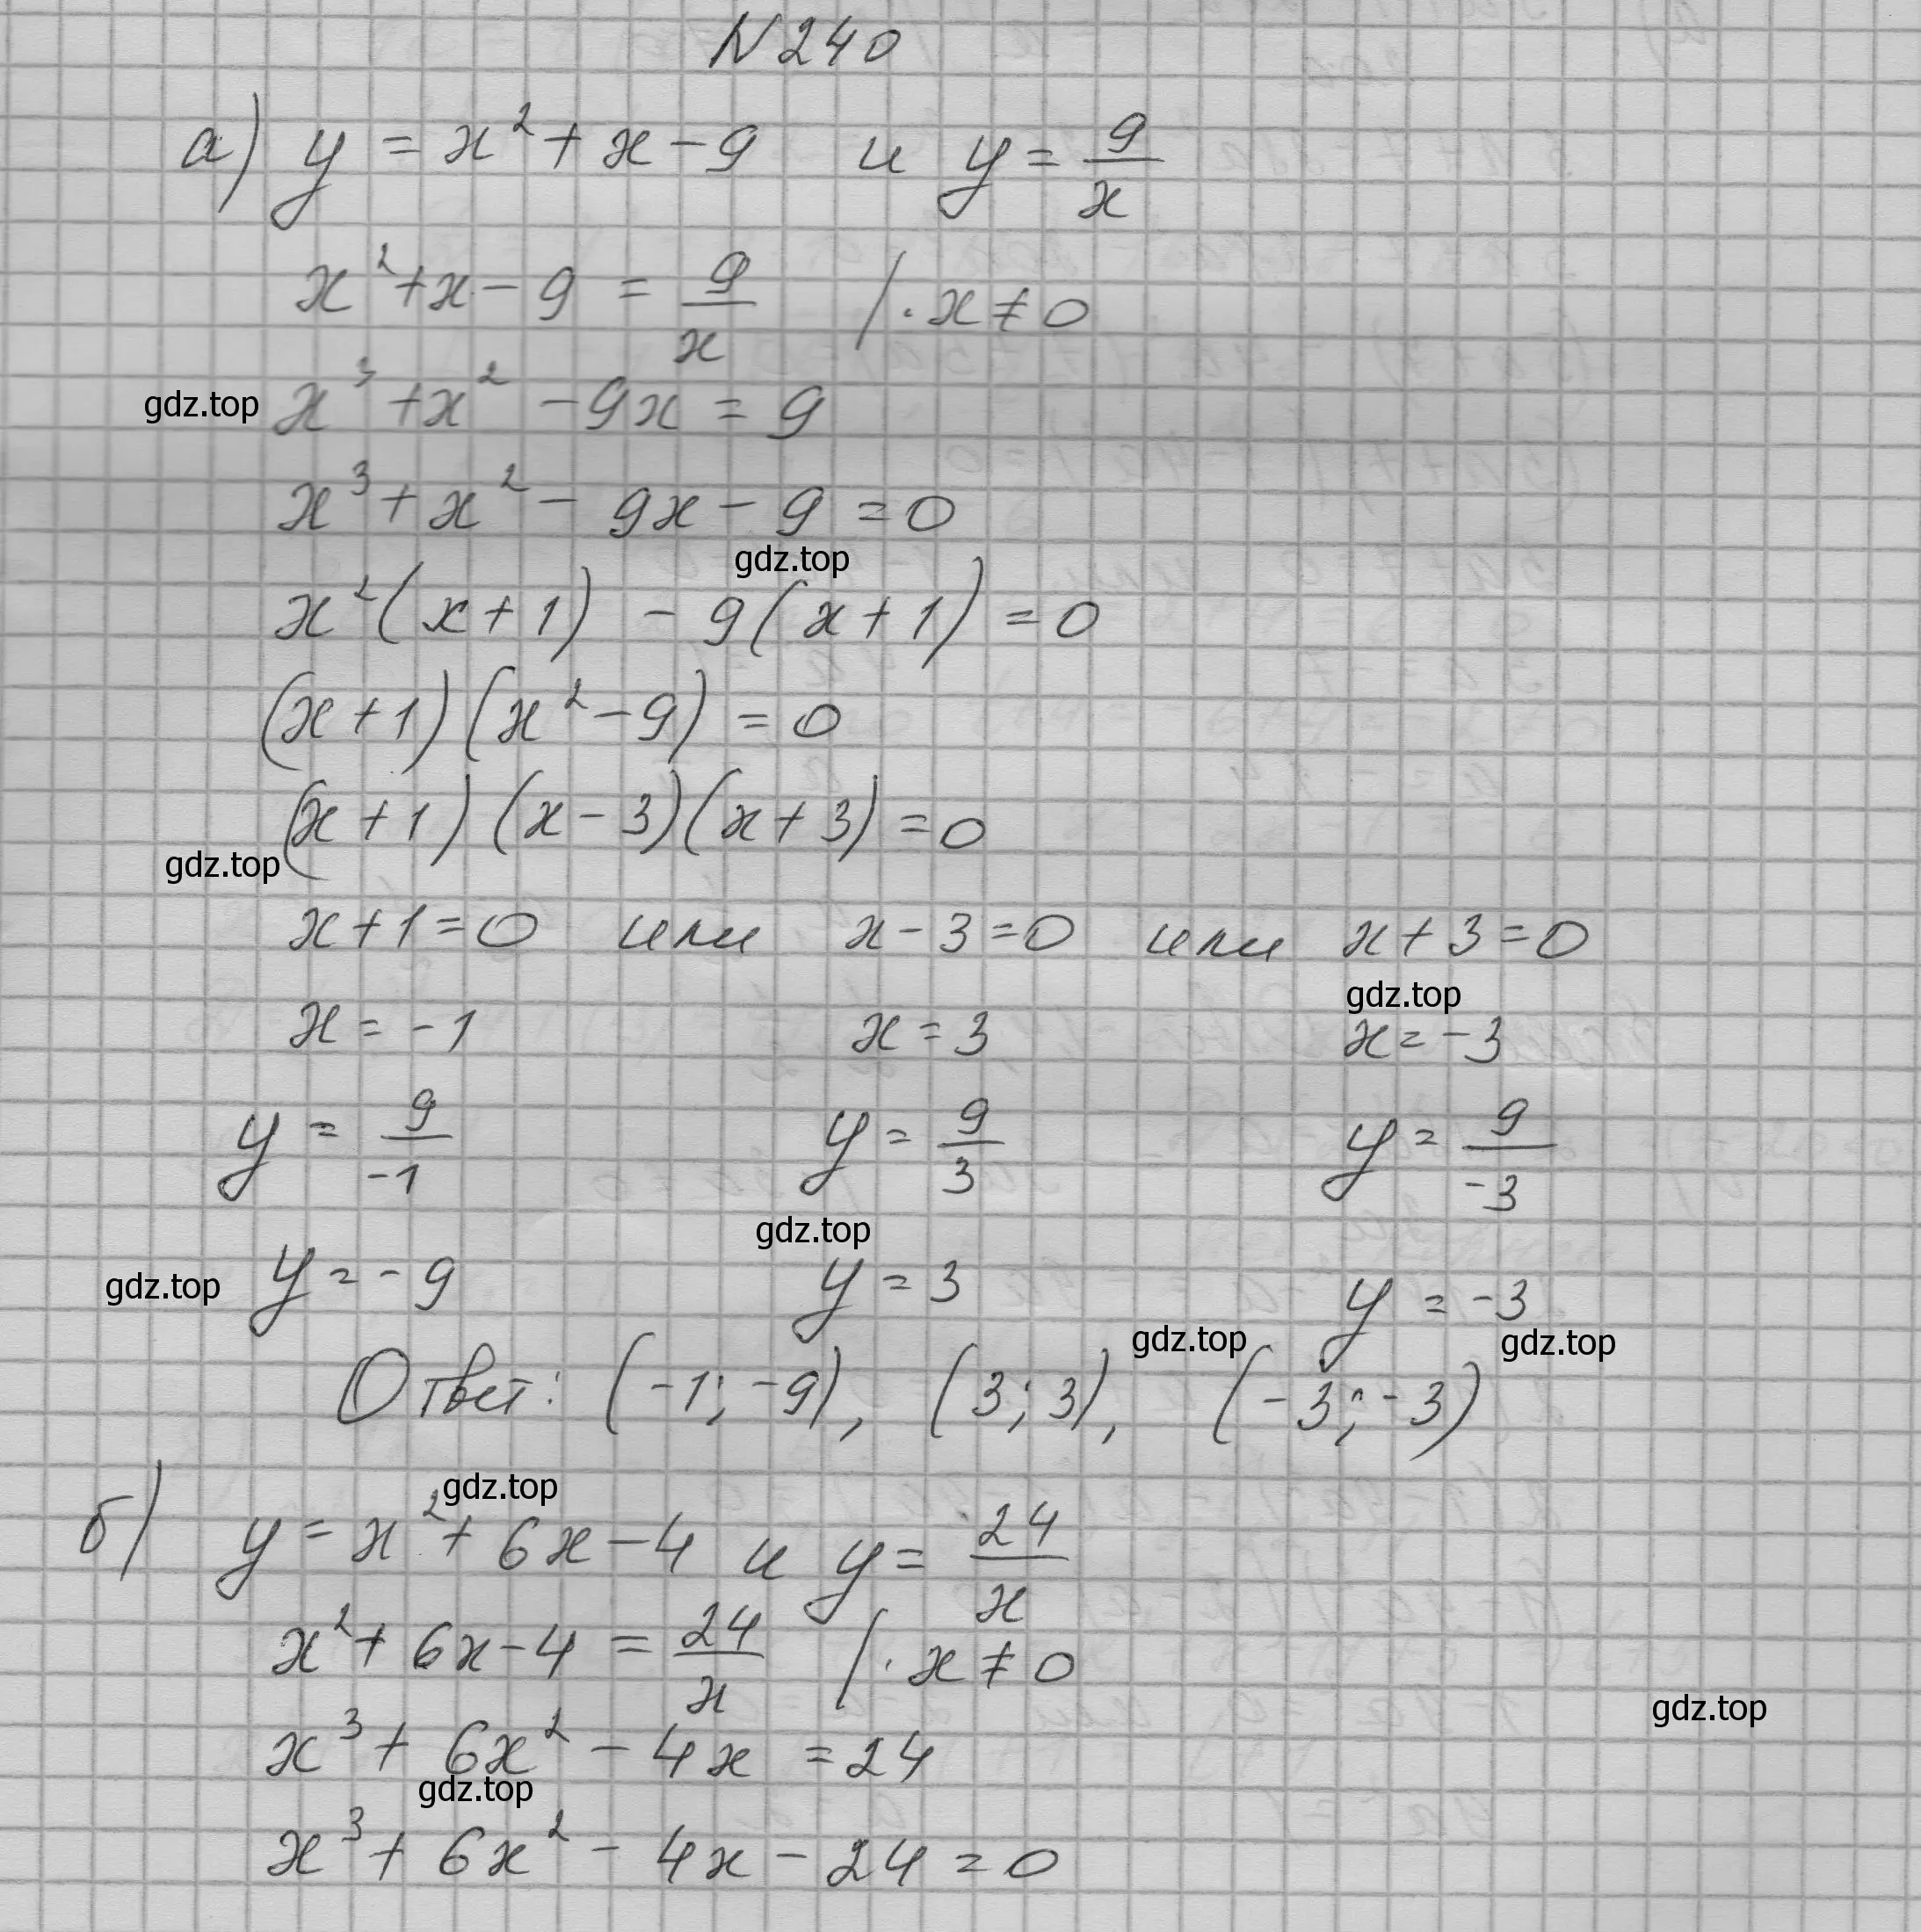 N 240
а) y = x² + x - 9 и y = 9/x
x² + x - 9 = 9/x /· x ≠ 0
gdz.top x³ + x² - 9x = 9
x³ + x² - 9x - 9 = 0
gdz.top
x²(x + 1) - 9(x + 1) = 0
(x + 1)(x² - 9) = 0
(x + 1)(x - 3)(x + 3) = 0
gdz.top
x + 1 = 0 или x - 3 = 0 или x + 3 = 0
gdz.top
x = -1 x = 3 x = -3
y = 9/-1 y = 9/3 y = 9/-3
gdz.top
gdz.top y = -9 y = 3 y = -3
gdz.top gdz.top
Ответ: (-1; -9), (3; 3), (-3; -3)
gdz.top
б) y = x² + 6x - 4 и y = 24/x
x² + 6x - 4 = 24/x /· x ≠ 0
gdz.top
x³ + 6x² - 4x = 24
gdz.top
x³ + 6x² - 4x - 24 = 0